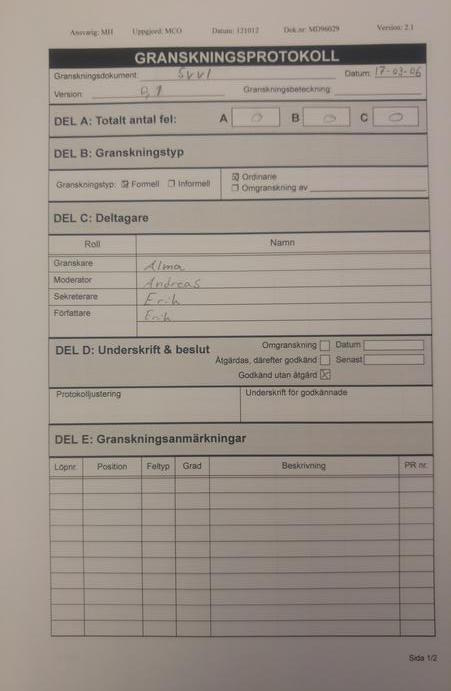 Ansvarig: MH Uppgjord: MCO Datum: 121012 Dok.nr: MD96029 Version: 2.1
GRANSKNINGSPROTOKOLL
Granskningsdokument: SVVI Datum: 17-03-06
Version: 0,1 Granskningsbeteckning:
DEL A: Totalt antal fel: A 0 B 0 C 0
DEL B: Granskningstyp
Granskningstyp: Formell Informell
Ordinarie
Omgranskning av
DEL C: Deltagare
Roll Namn
Granskare Alma
Moderator Andreas
Sekreterare Erik
Författare Erik
DEL D: Underskrift & beslut
Omgranskning Datum
Åtgärdas, därefter godkänd Senast
Godkänd utan åtgärd
Protokolljustering Underskrift för godkännade
DEL E: Granskningsanmärkningar
Löpnr. Position Feltyp Grad Beskrivning PR nr.
Sida 1/2